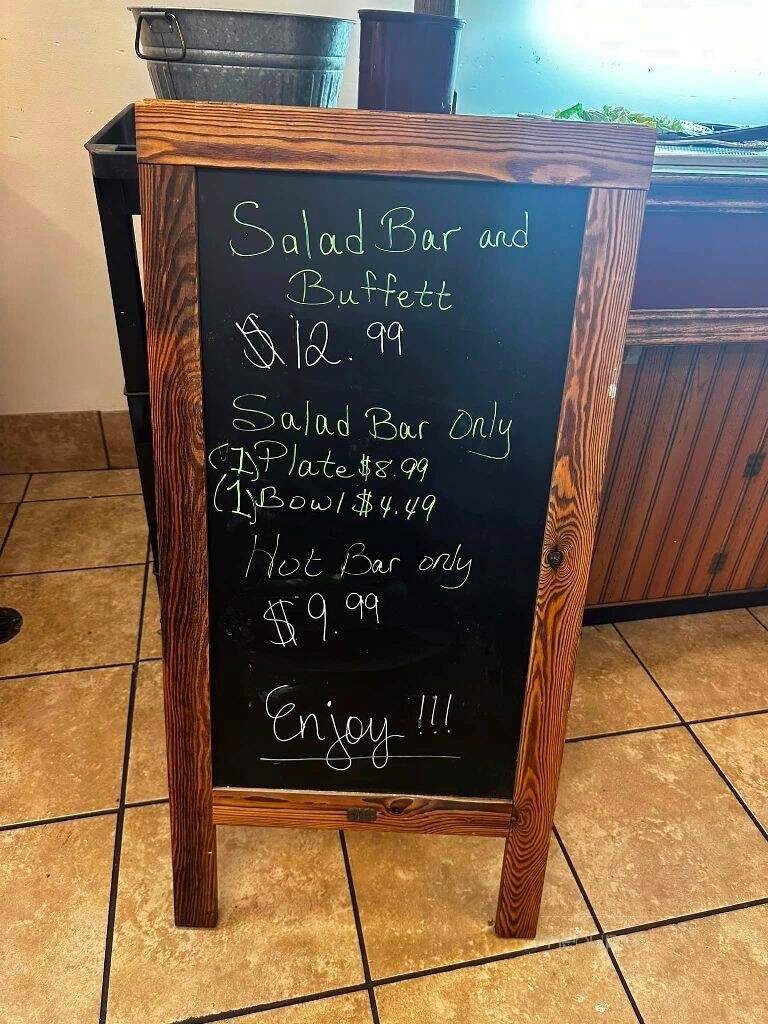 Salad Bar and
Buffett
$12.99
Salad Bar Only
(1) Plate $8.99
(1) Bowl $4.49
Hot Bar only
$9.99
Enjoy !!!